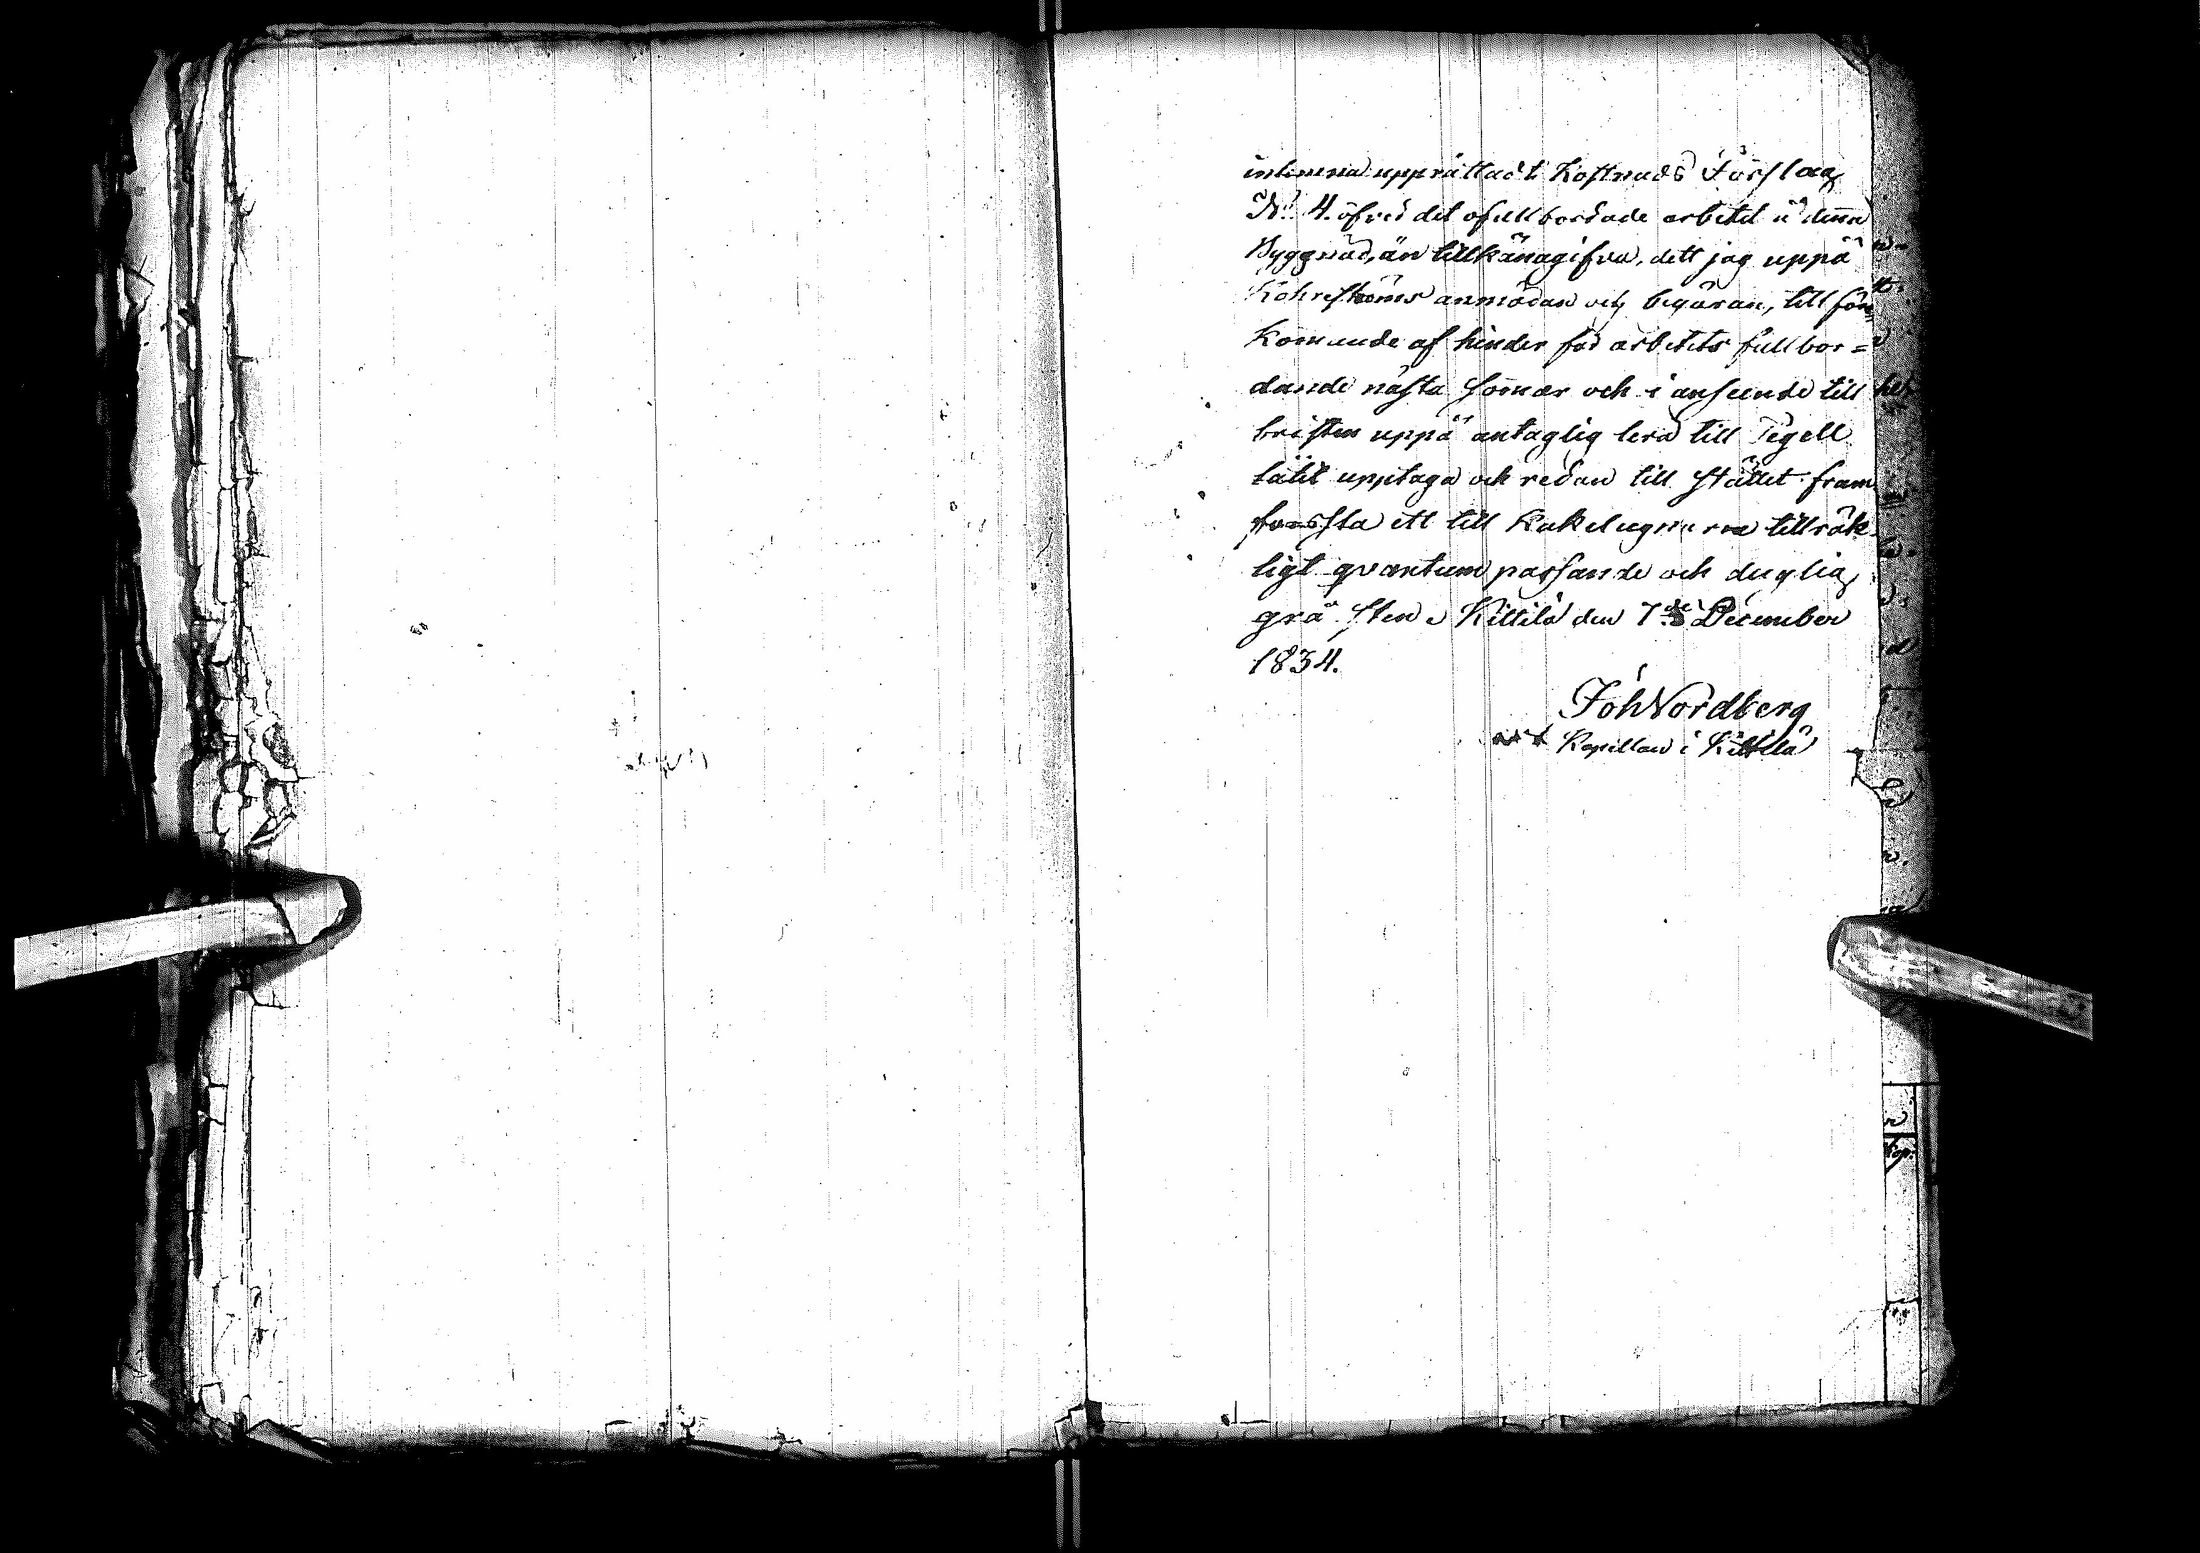 inlemna upprättadt Kostnads Förslag
N:o 4. öfver det ofullbordade arbetet å denna
Byggnad, än tillkännagifva, dett jag uppå
anmodan och begäran, till före
kommande af hinder för arbetets fullbor=
dande nästa sommar och i anseende till
bristen uppå antaglig lera till Tegell
låtit upptaga och redan till stället fram
forsla ett till Kakelugnarna tillräk
ligt qvantum passande och duglig
grå sten. Kittilä den 7de December
1834.
Joh Nordberg
Kapellan i Kittilä